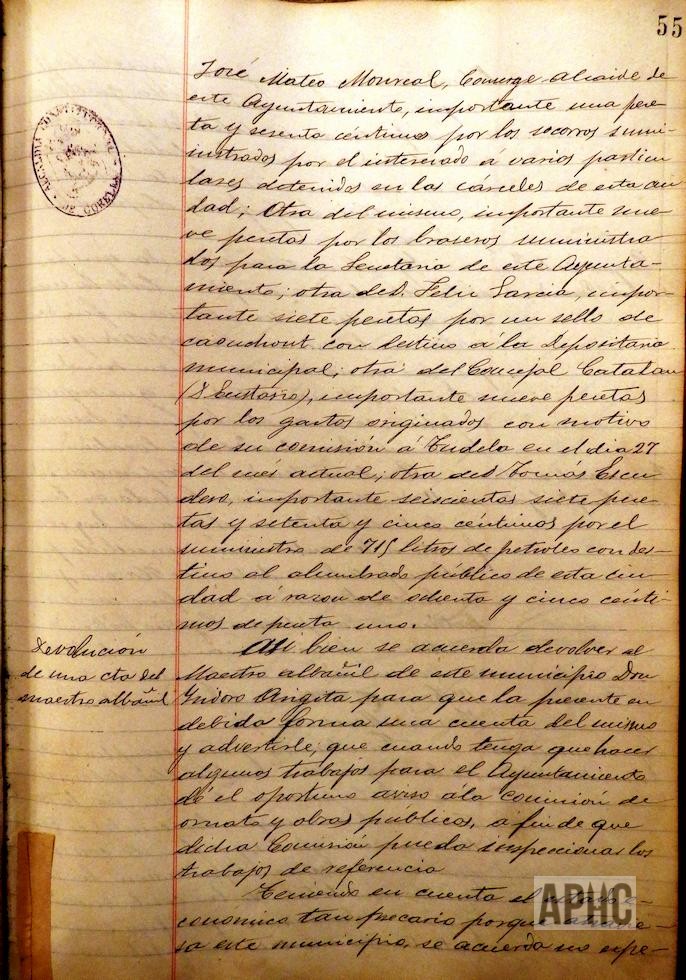 55
ALCALDIA CONSTITUCIONAL
DE CORELLA
José Mateo Monreal, Conserge-Alcaide de
este Ayuntamiento, importante una pese
ta y sesenta céntimos por los socorros sumi-
nistrados por el interesado a varios particu
lares detenidos en las cárceles de esta ciu
dad; Otra del mismo, importante nue
ve pesetas por los braseros suministra
dos para la Secretaria de este Ayunta-
miento; otra de D. Felix Garcia, impor-
tante siete pesetas por un sello de
caouchout con destino a la Depositaria
municipal; otra del Concejal Catalan
(D. Eustasio), importante nueve pesetas
por los gastos originados con motivo
de su comisión á Tudela en el dia 27
del mes actual; otra de D. Tomás Escu
dero, importante seiscientas siete pese
tas y setenta y cinco céntimos por el
suministro de 715 litros de petroleo con des-
tino al alumbrado público de esta ciu-
dad a razon de ochenta y cinco cénti-
mos de peseta uno.
Devolución
de una cta del
maestro albañil
Asi bien se acuerda devolver al
Maestro albañil de este municipio Don
Ysidoro Arigita para que la presente en
debida forma una cuenta del mismo
y advertirle, que cuando tenga que hacer
algunos trabajos para el Ayuntamiento
dé el oportuno aviso a la comisión de
ornato y obras públicas, a fin de que
dicha Comisión pueda inspeccionar los
trabajos de referencia
Teniendo en cuenta el estado e-
conomico tan precario porque atravie-
sa este municipio, se acuerda no espe-
APHC